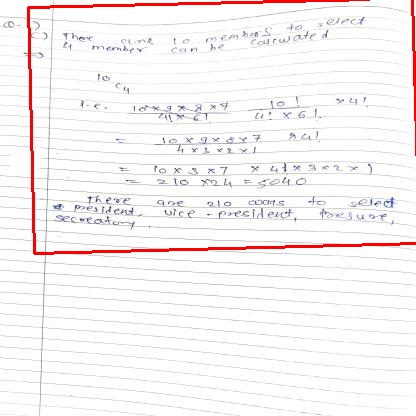 Q-1)
c) There are 10 members to select
4 member can be calculated
=>
10C4
i.e. 10×9×8×7 / 4!×6! 10! / 4!×6! ×4!
= 10×9×8×7 / 4×3×2×1 ×4!
= 10×3×7 ×4×3×2×1
= 210×24 = 5040
There are 210 ways to select
president, vice-president, tresure,
secreatory.